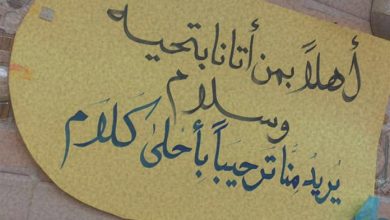 أهلاً بمن أتانا بتحيه
وسلام
يريد منَّا ترحيباً بأحلىٰ كلام